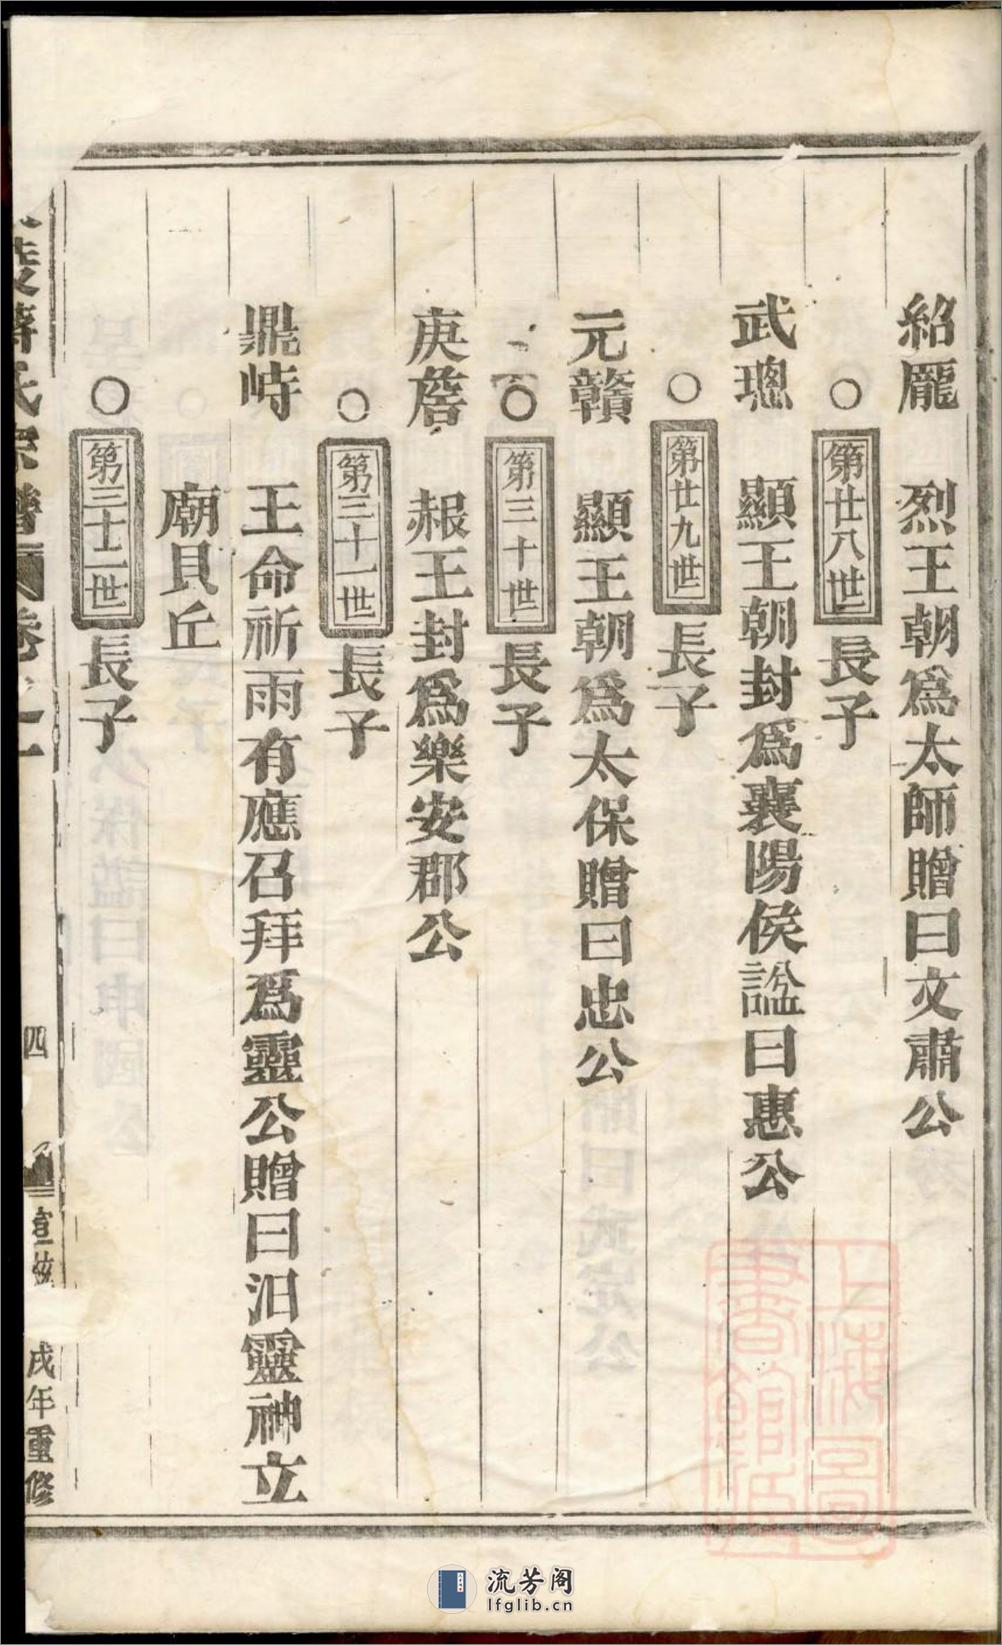 紹龎 烈王朝爲太師贈曰文肅公
○第廿八世長子
武璁 顯王朝封爲襄陽侯謚曰惠公
○第廿九世長子
元贛 顯王朝爲太保贈曰忠公
○第三十世長子
庚 赧王封爲樂安郡公
○第三十一世長子
鼎峙 王命祈雨有應召拜爲靈公贈曰汨靈神立
廟貝丘
○第三十二世長子
氏宗譜 卷之一
四
戌年重修
上海圖書館藏
流芳阁
lfglib.cn